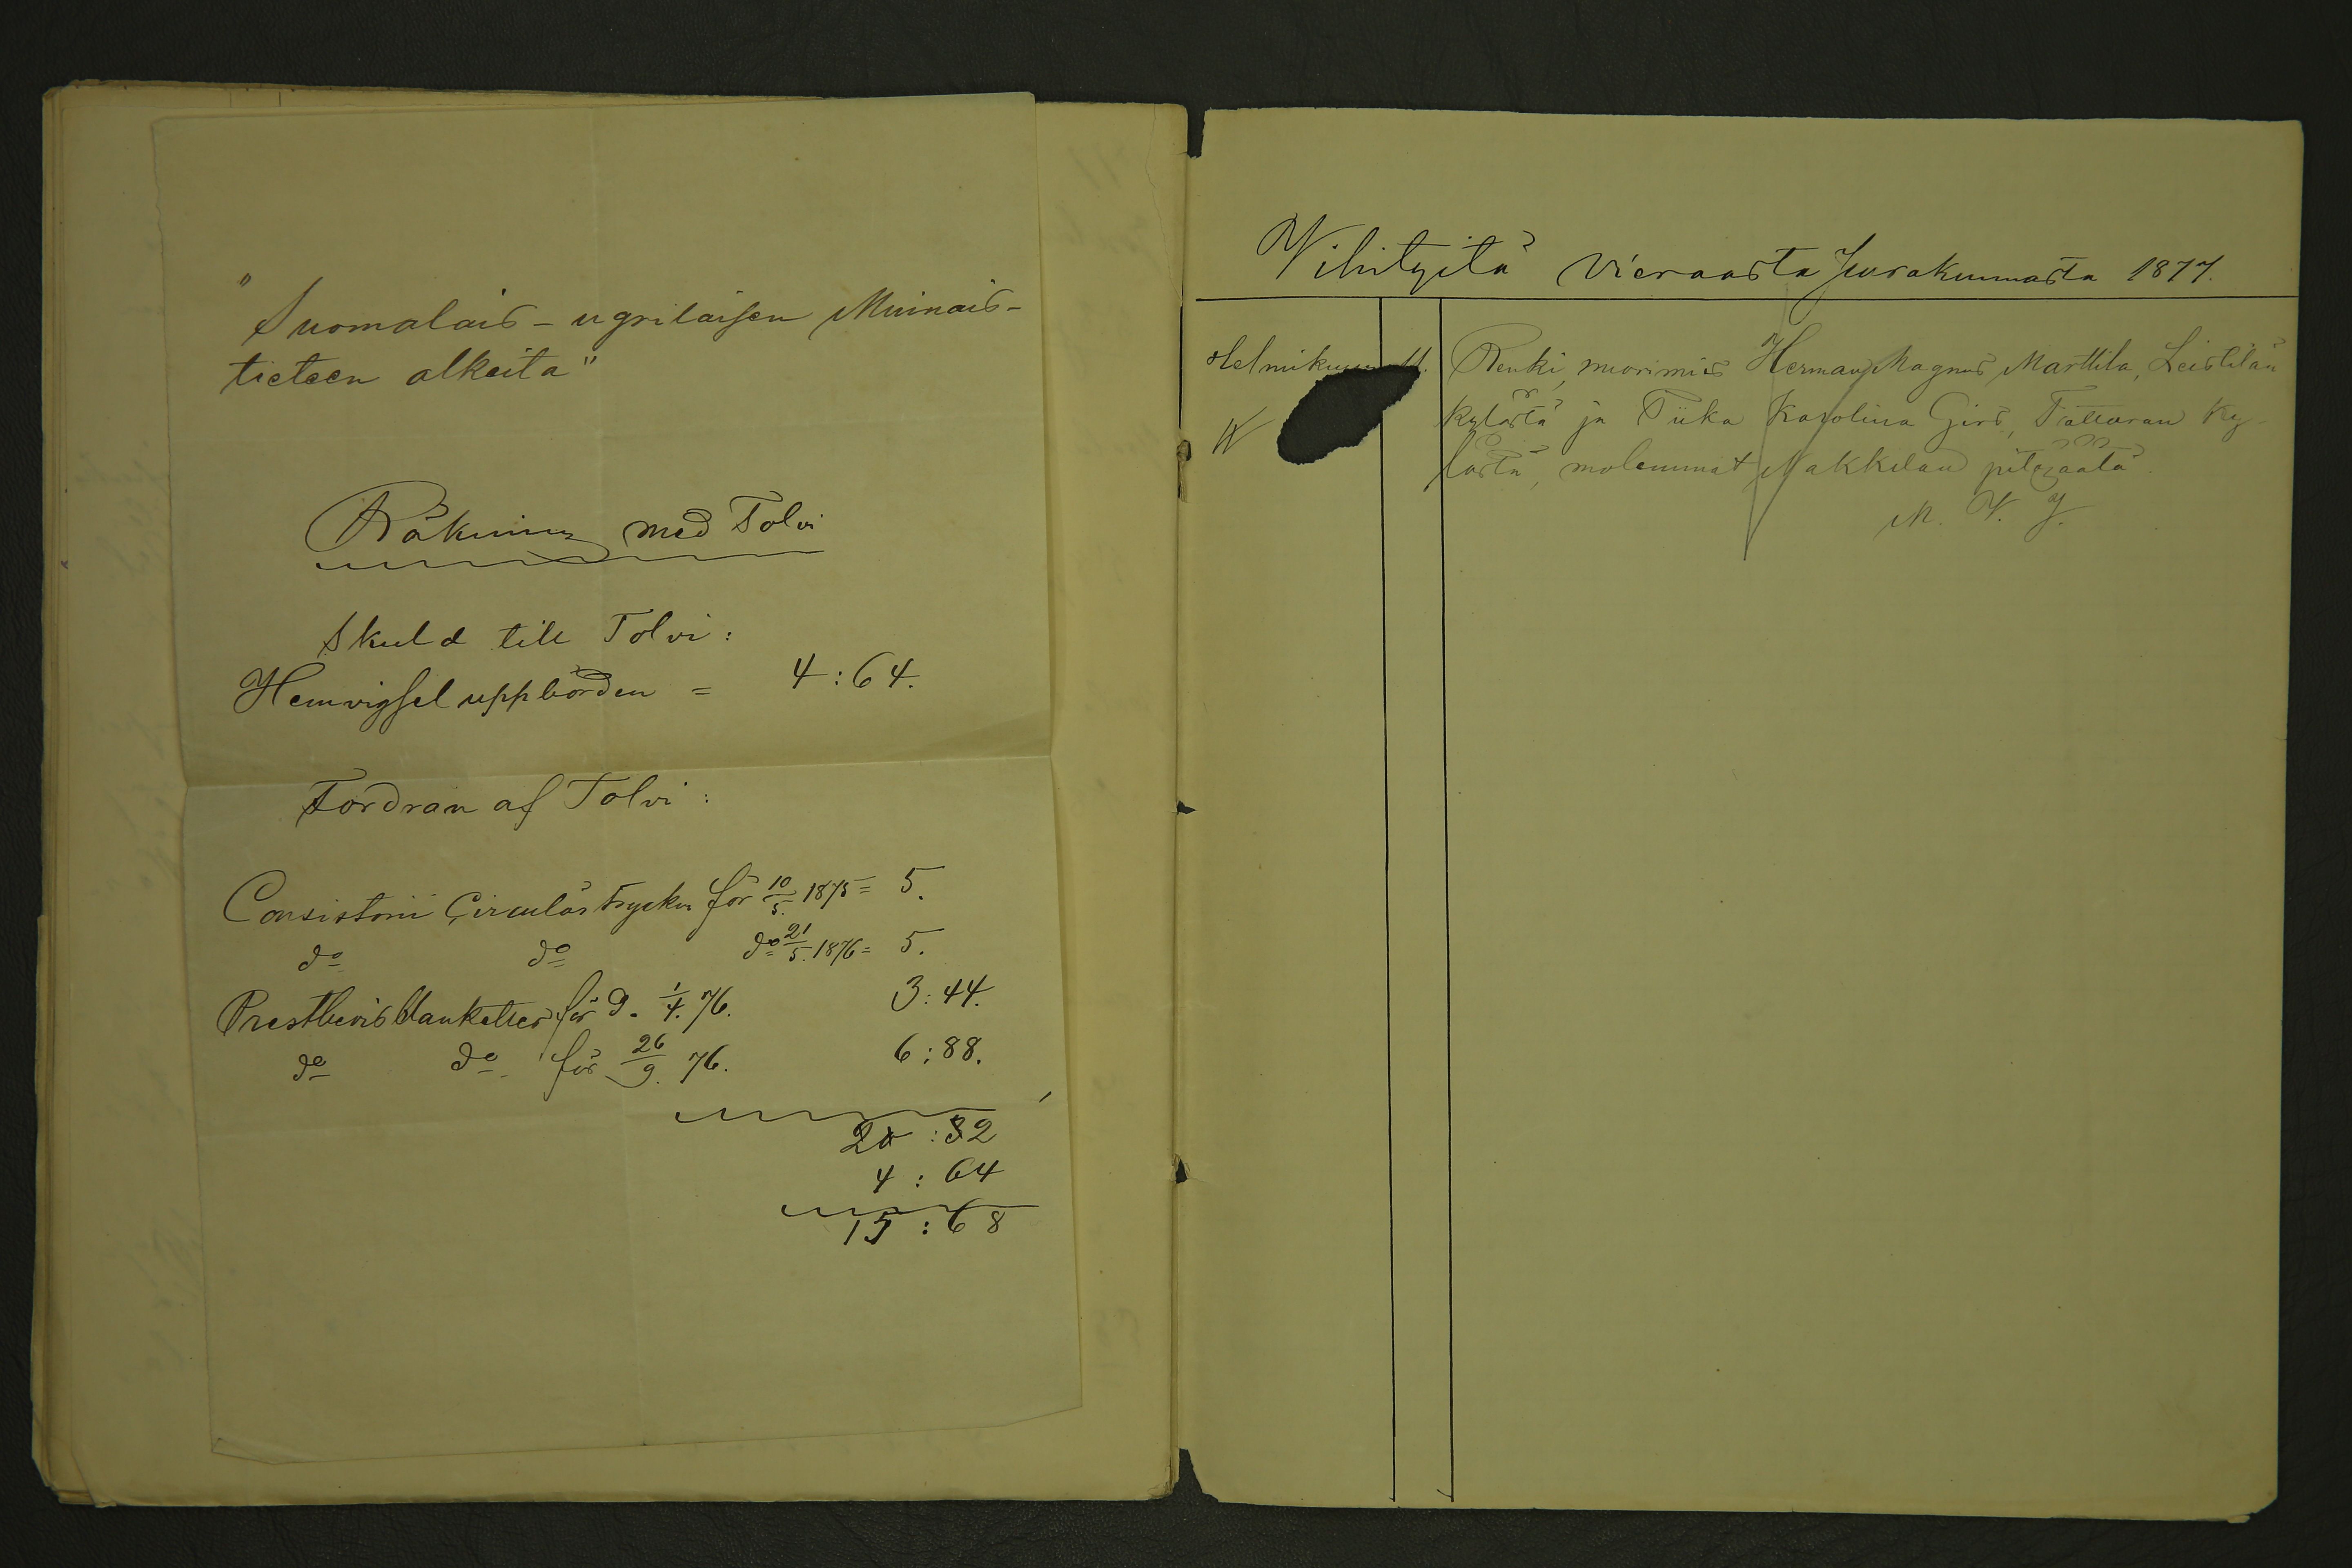 "Suomalais-ugrilaisen Muinais-
tieteen alkeita"
Räkning med Tolvi
Skuld till Tolvi:
Hemvigsel uppbörden = 4:64.
Fordran af Tolvi:
Consistorii Circulär trycken för 10/5. 1875 = 5.
do do do 21/5. 1876 = 5.
Prestbevis blanketter för d. 1/4. 76. 3:44.
do do för 26/9. 76. 6:88.
20:32
4:64
15:68
Vihityitä vieraasta Seurakunnasta 1877.
Helmikuun 11. Renki, nuorimies Herman Magnus Marttila, Leistilän
kylästä ja Piika Karolina Girs, Tattaran ky-
lästä, molemmat Nakkilan pitäjäätä.
M. V. Y.